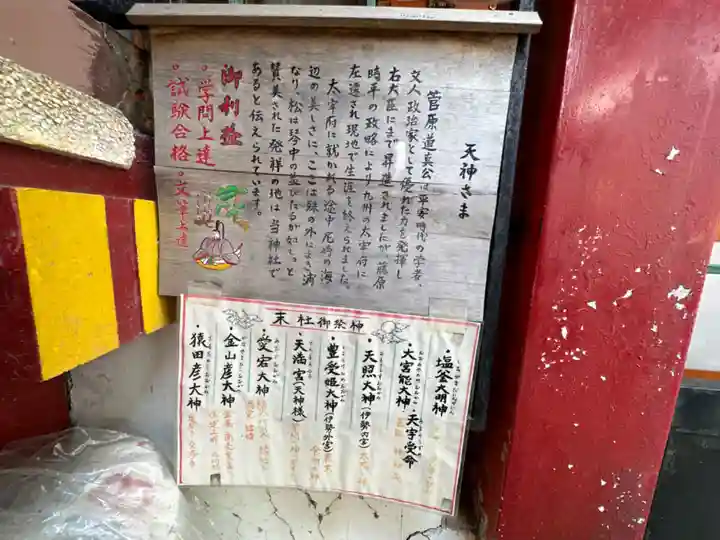 天神さま
菅原道真公は平安時代の学者、
文人、政治家として優れた力を発揮し
右大臣にまで昇進されましたが、藤原
時平の政略により九州の太宰府に
左遷され現地で生涯を終えられました。
太宰府に就かれる途中、尼崎の海
辺の美しさに、ここは殊の外によき浦
なり、松は琴中の並びたるが如し。と
賛美された発祥の地は、当神社で
あると伝えられています。
御利益
・学問上達
・試験合格・文筆上達
末社御祭神
・塩釜大明神
・大宮能大神・天宇受命
・天照大神(伊勢内宮)
・豊受姫大神(伊勢外宮)
・天満宮(天神様)
・愛宕大神
・金山彦大神
・猿田彦大神